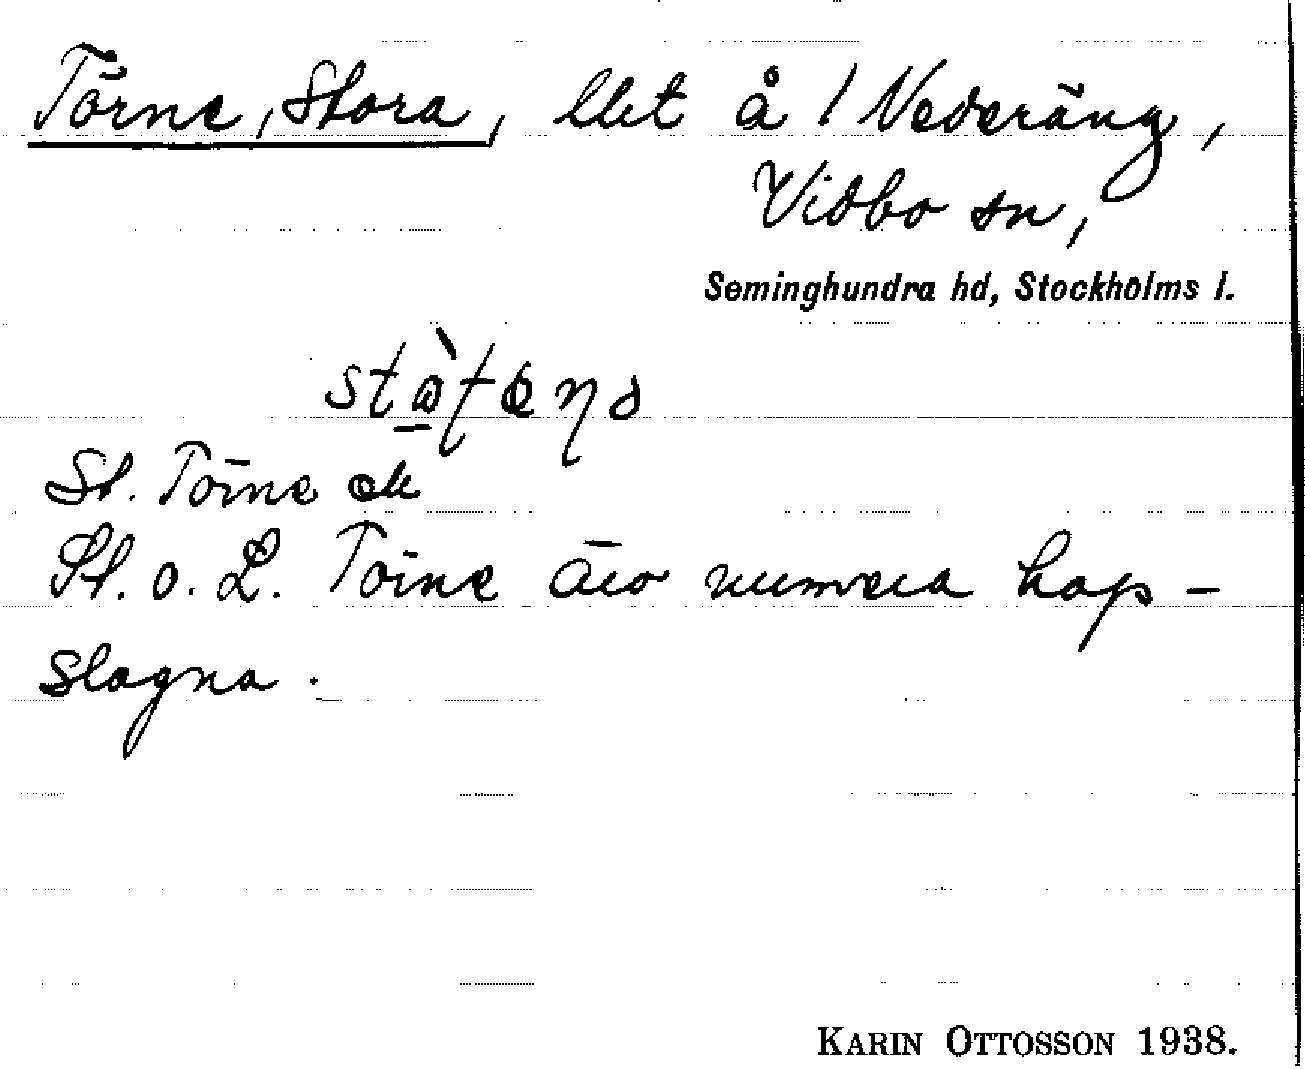 Törne, Stora, llet å 1 Nederäng,
Vidbo sn,
Seminghundra hd, Stockholms l.
St. Törne ek
St. o. L. Törne äro numera hop-
slagna.
KARIN OTTOSSON 1938.